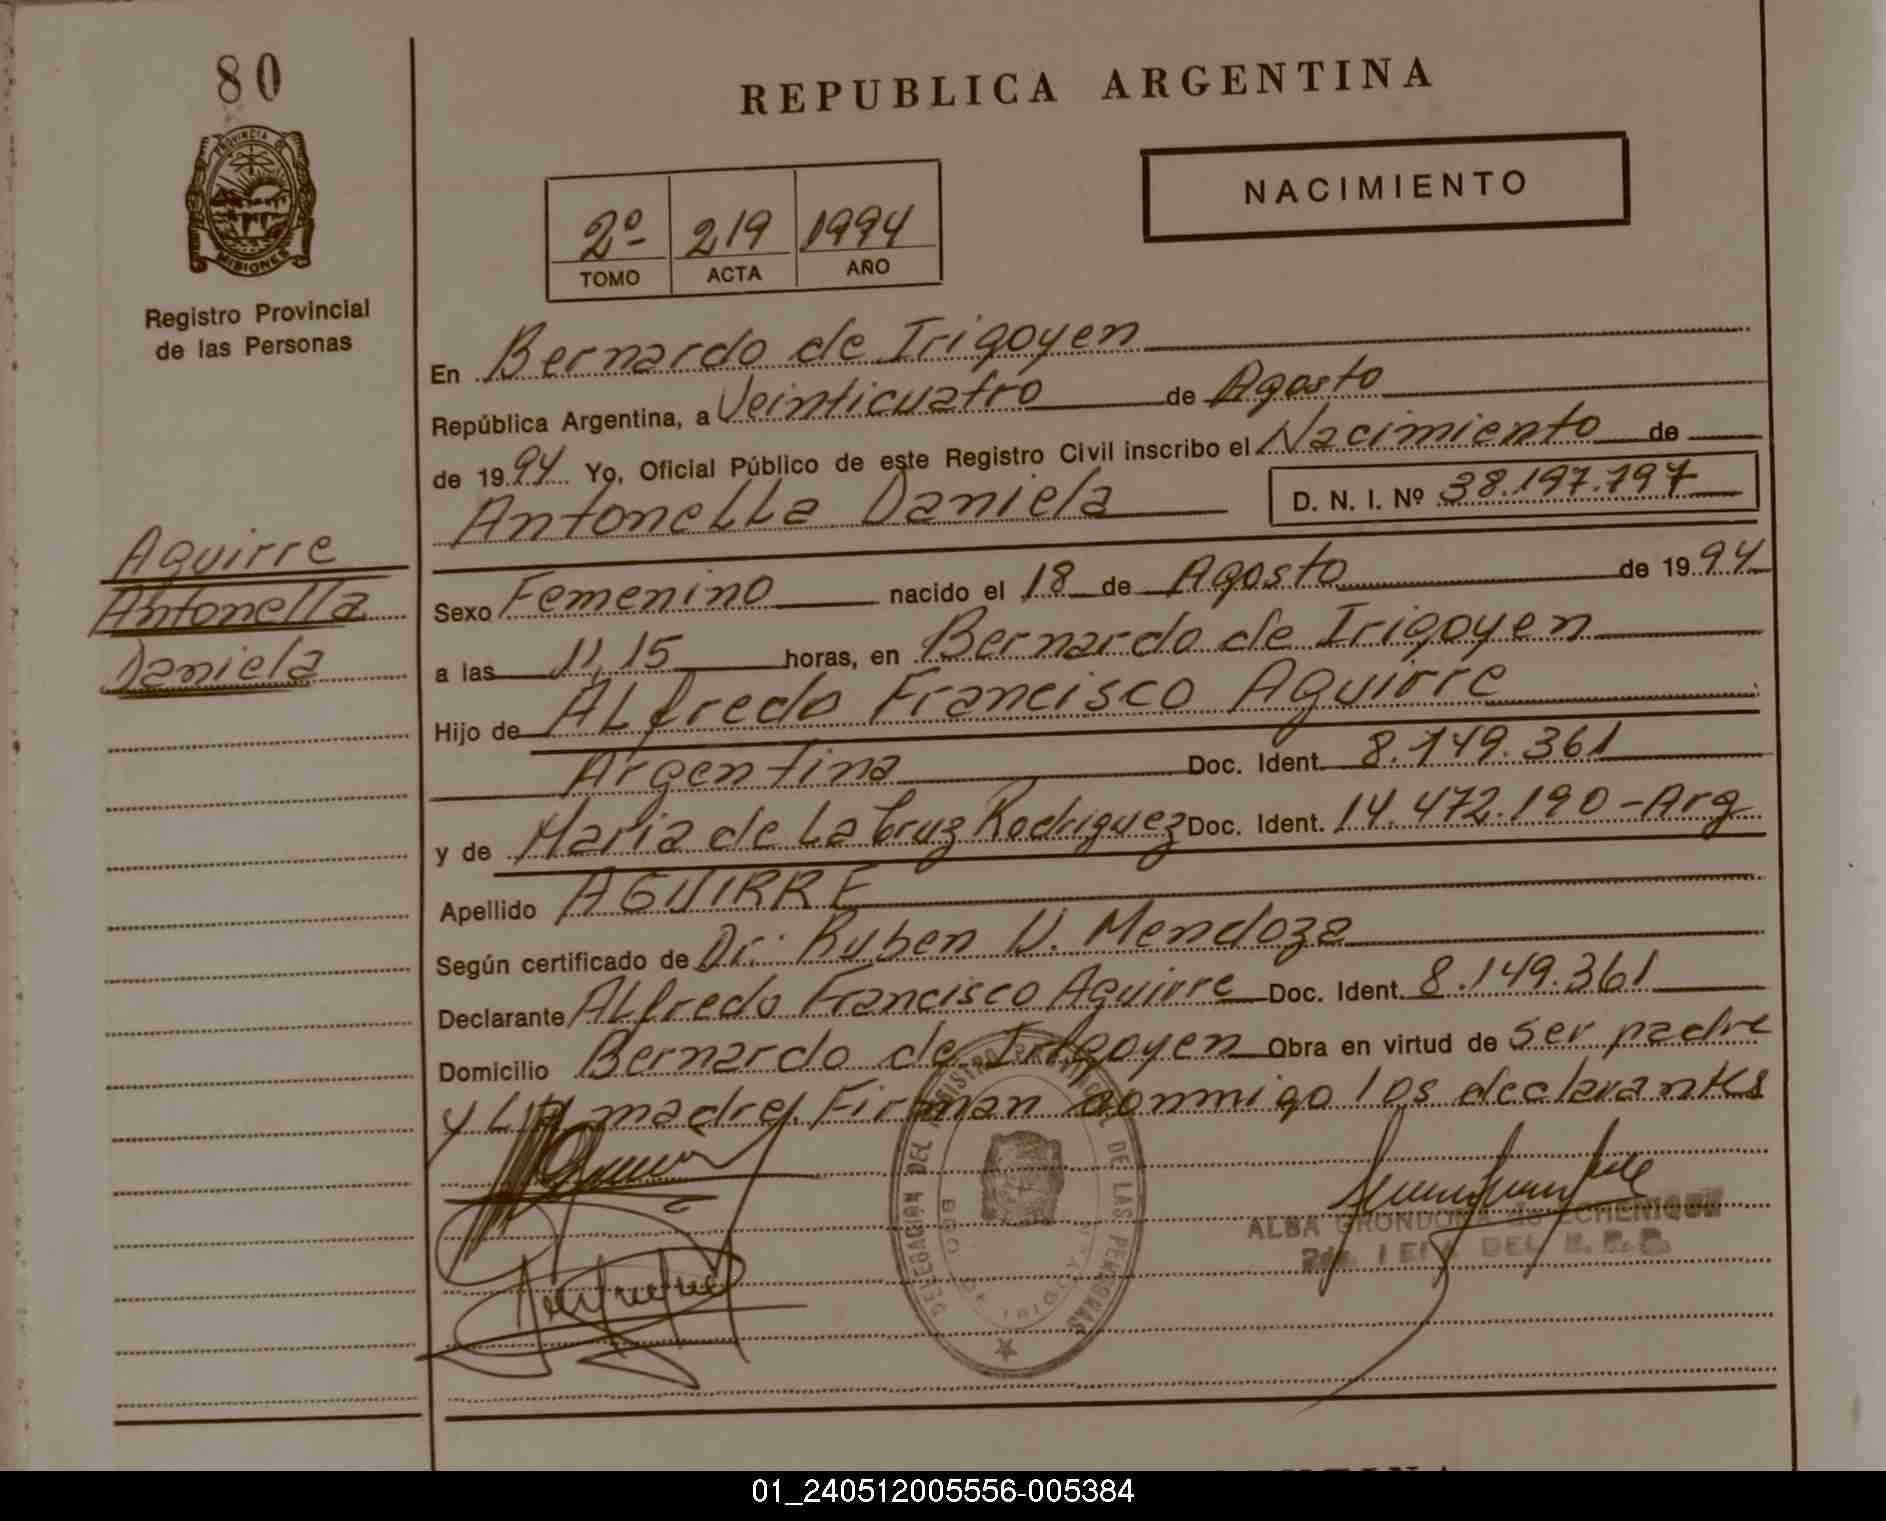 80
REPUBLICA ARGENTINA
PROVINCIA DE
MISIONES
Registro Provincial
de las Personas
NACIMIENTO
2º 219 1994
TOMO ACTA AÑO
En Bernardo de Irigoyen
República Argentina, a Veinticuatro de Agosto
de 1994 Yo, Oficial Público de este Registro Civil inscribo el Nacimiento de
Antonella Daniela D. N. I. Nº 38.197.797
Aguirre
Antonella
Daniela
Sexo Femenino nacido el 18 de Agosto de 1994
a las 11,15 horas, en Bernardo de Irigoyen
Hijo de ALfredo Francisco Aguirre
Argentina Doc. Ident. 8.149.361
y de Maria de La Cruz Rodriguez Doc. Ident. 14.472.190-Arg
Apellido AGUIRRE
Según certificado de Dr: Ruben N. Mendoza
Declarante ALfredo Francisco Aguirre Doc. Ident. 8.149.361
Domicilio Bernardo de Irigoyen Obra en virtud de ser padre
y La madre. Firman conmigo los declarantes
DELEGACION DEL REGISTRO PROVINCIAL DE LAS PERSONAS
BDO DE IRIGOYEN
ALBA GRONDONA de ECHENIQUE
01_240512005556-005384